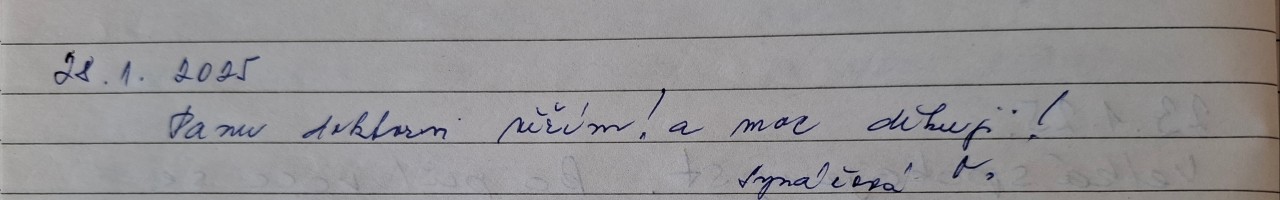 28.1. 2025
Panu doktorovi věřím! a moc děkuji!
Synáčková V.